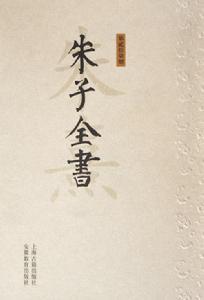 朱子全書
朱熹
上海古籍出版社
安徽教育出版社